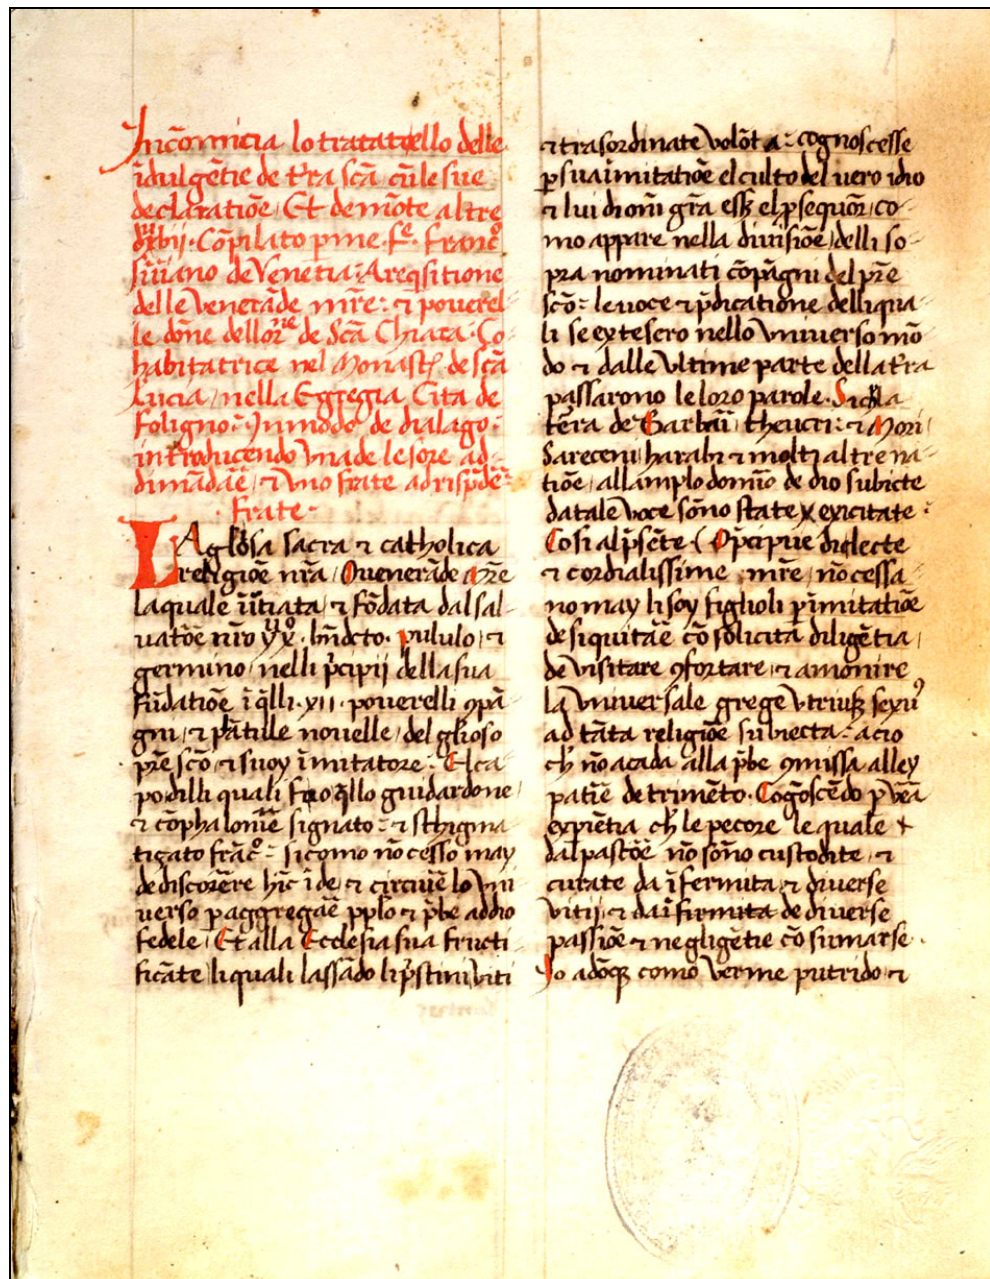 Incōmicia lo tratatello delle
īdulgētie de tr̄a scā cū le sue
declaratiōe / Et de mōte al tre
Cōpilato p me. fᵉ. Francᵒ
suriano de Venetia: A reqsitione
delle Venerāde mr̄e: ⁊ pouerel-
le dōne dellorīe de Scā Chiara. Co-
habitatrice nel Monast. de scā
Lucia / nella Egregia Cita de
Foligno: In mōdo de dialago:
introducendo vna de le sore ad-
dimādāe / ⁊ vno frate ad rispōdē
. Frate .
LA gliosa sacra ⁊ catholica
religiōe nr̄a / O uenerāde Mr̄e
la quale īitiata / ⁊ fōdata dal sal-
uatōe nr̄o yhū xp̄o. bn̄dcto. pululo / ⁊
germino / nelli p̄cipij della sua
fūdatiōe ī q̄lli. xij. pouerelli ꝯpā
gni / ⁊ piātille nouelle / del glioso
pr̄e scō / ⁊ suoy īmitatore: El ca-
po dilli quali fuo q̄llo guidardone
⁊ cōphaloniē signato: ⁊ sthigma-
tigato frācᵒ: sicomo nō cesso may
de discorēre hīc īde / ⁊ circuiē lo vni
uerso p aggregāe pplo ⁊ p̄be addio
fedele / Et alla Ecclesia sua fructi-
ficāte / li quali lassādo li p̄stini viti
⁊ trasordinate volōta: cognoscesse
p sua imitatiōe el culto del uero idio
⁊ lui di om̄i gr̄a ess̄ el p̄sequōr / co-
mo appare nella diuisiōe / delli so-
pra nominati cōpāgni del pr̄e
scō: le uoce ⁊ p̄dicatione delli qua-
li se extesero nello vniuerso mō
do ⁊ dalle vltime parte della tr̄a
passarono le loro parole. Sichla
tēra de Barbari theucri: ⁊ Mori
Sareceni / harabi ⁊ molti altre na-
tiōe / all amplo domīo de dio subicte
da tale voce sōno state exicitate:
Cosi al p̄sēte ( O p̄cipue dilecte
⁊ cordialissime mr̄e / nō cessa
no may li soy figlioli p īmitatiōe
de siquitāe cō solicita diligētia /
de visitare ꝯfortare / ⁊ amonire
la vniuersale grege vtriusq̄ sexuꝰ
ad tāta religiōe subiecta: acio
ch̄ nō acada alla p̄be ꝯmissa alley
patīe detrimēto. Cognoscēdo p vēa
expiētia ch̄ le pecore le quale
dal pastōe nō sōno custodite / ⁊
curate da īfermita / ⁊ diuerse
vitij / ⁊ da īfirmita de diuerse
passiōe ⁊ negligētie cōsumarse.
Io adōq̄ como verme putrido ⁊